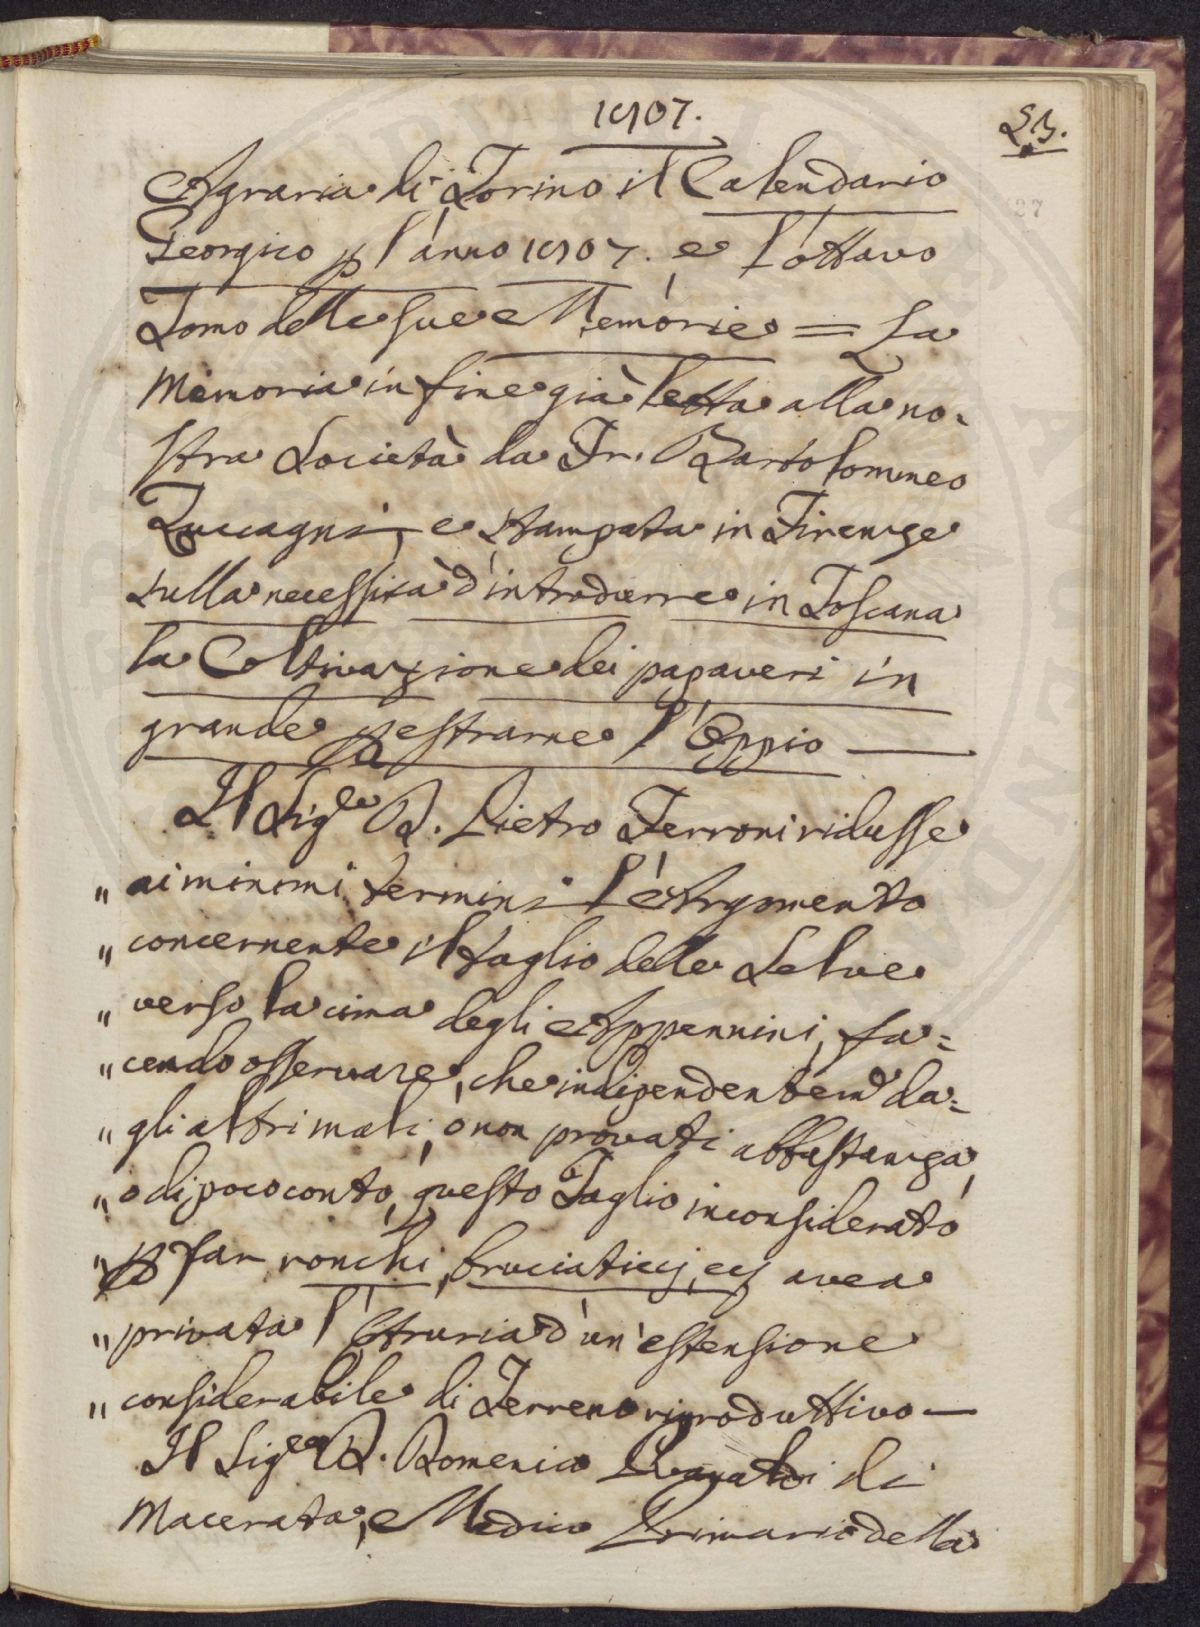 1807.
23.
Agraria di Torino il Calendario
Georgico p l'anno 1807. e l'ottavo
Tomo delle sue Memorie = La
Memoria in fine già letta alla no=
stra Società da Fr. Bartolommeo
Zuccagni, e stampata in Firenze
sulla necessità d'introdurre in Toscana
la Coltivazione dei papaveri in
grande p estrarne l'Oppio —
Il Sig.re D. Pietro Ferroni ridusse
" ai minimi termini l'Argomento
" concernente il taglio delle Selve
" verso la cima degli Appennini, fa=
" cendo osservare, che indipendentem.e da=
" gli altri mali, o non provati abbastanza,
" o di poco conto, questo Taglio inconsiderato
" p far ronchi, bruciaticcj, ec avea
" privata l'Etruria d'un'estensione
" considerabile di Terreno riproduttivo —
Il Sig.re D. Domenico di
Macerata, e Medico Primario della